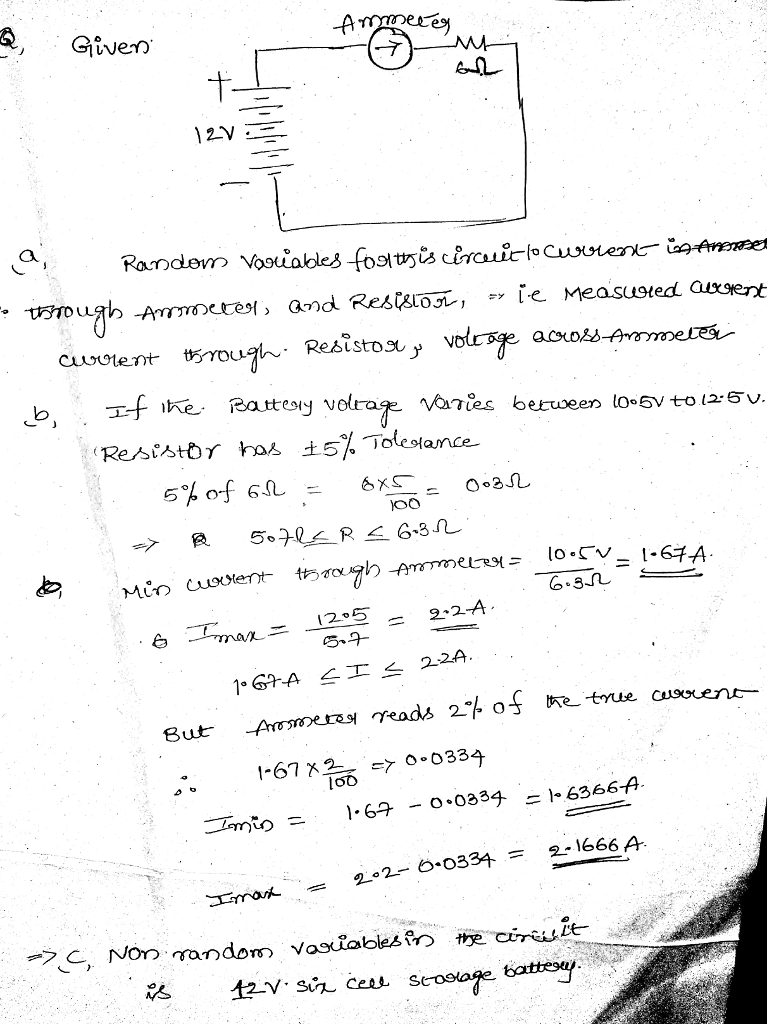 Q, Given
Ammeter
6Ω
+
12V
-
a, Random variables for this circuit is current is Ammeter
through Ammeter, and Resistor, => i.e Measured current
current through Resistor, voltage across Ammeter
b, If the Battery voltage varies between 10.5V to 12.5V.
Resistor has ±5% Tolerance
5% of 6Ω = 6x5/100 = 0.3Ω
=> 5.7Ω ≤ R ≤ 6.3Ω
b, Min current through Ammeter = 10.5V/6.3Ω = 1.67A.
Imax = 12.5/5.7 = 2.2A.
1.67A ≤ I ≤ 2.2A.
But Ammeter reads 2% of the true current
∴ 1.67 x 2/100 => 0.0334
Imin = 1.67 - 0.0334 = 1.6366A.
Imax = 2.2 - 0.0334 = 2.1666A.
=> C, Non random variables in the circuit
is 12V. six cell storage battery.